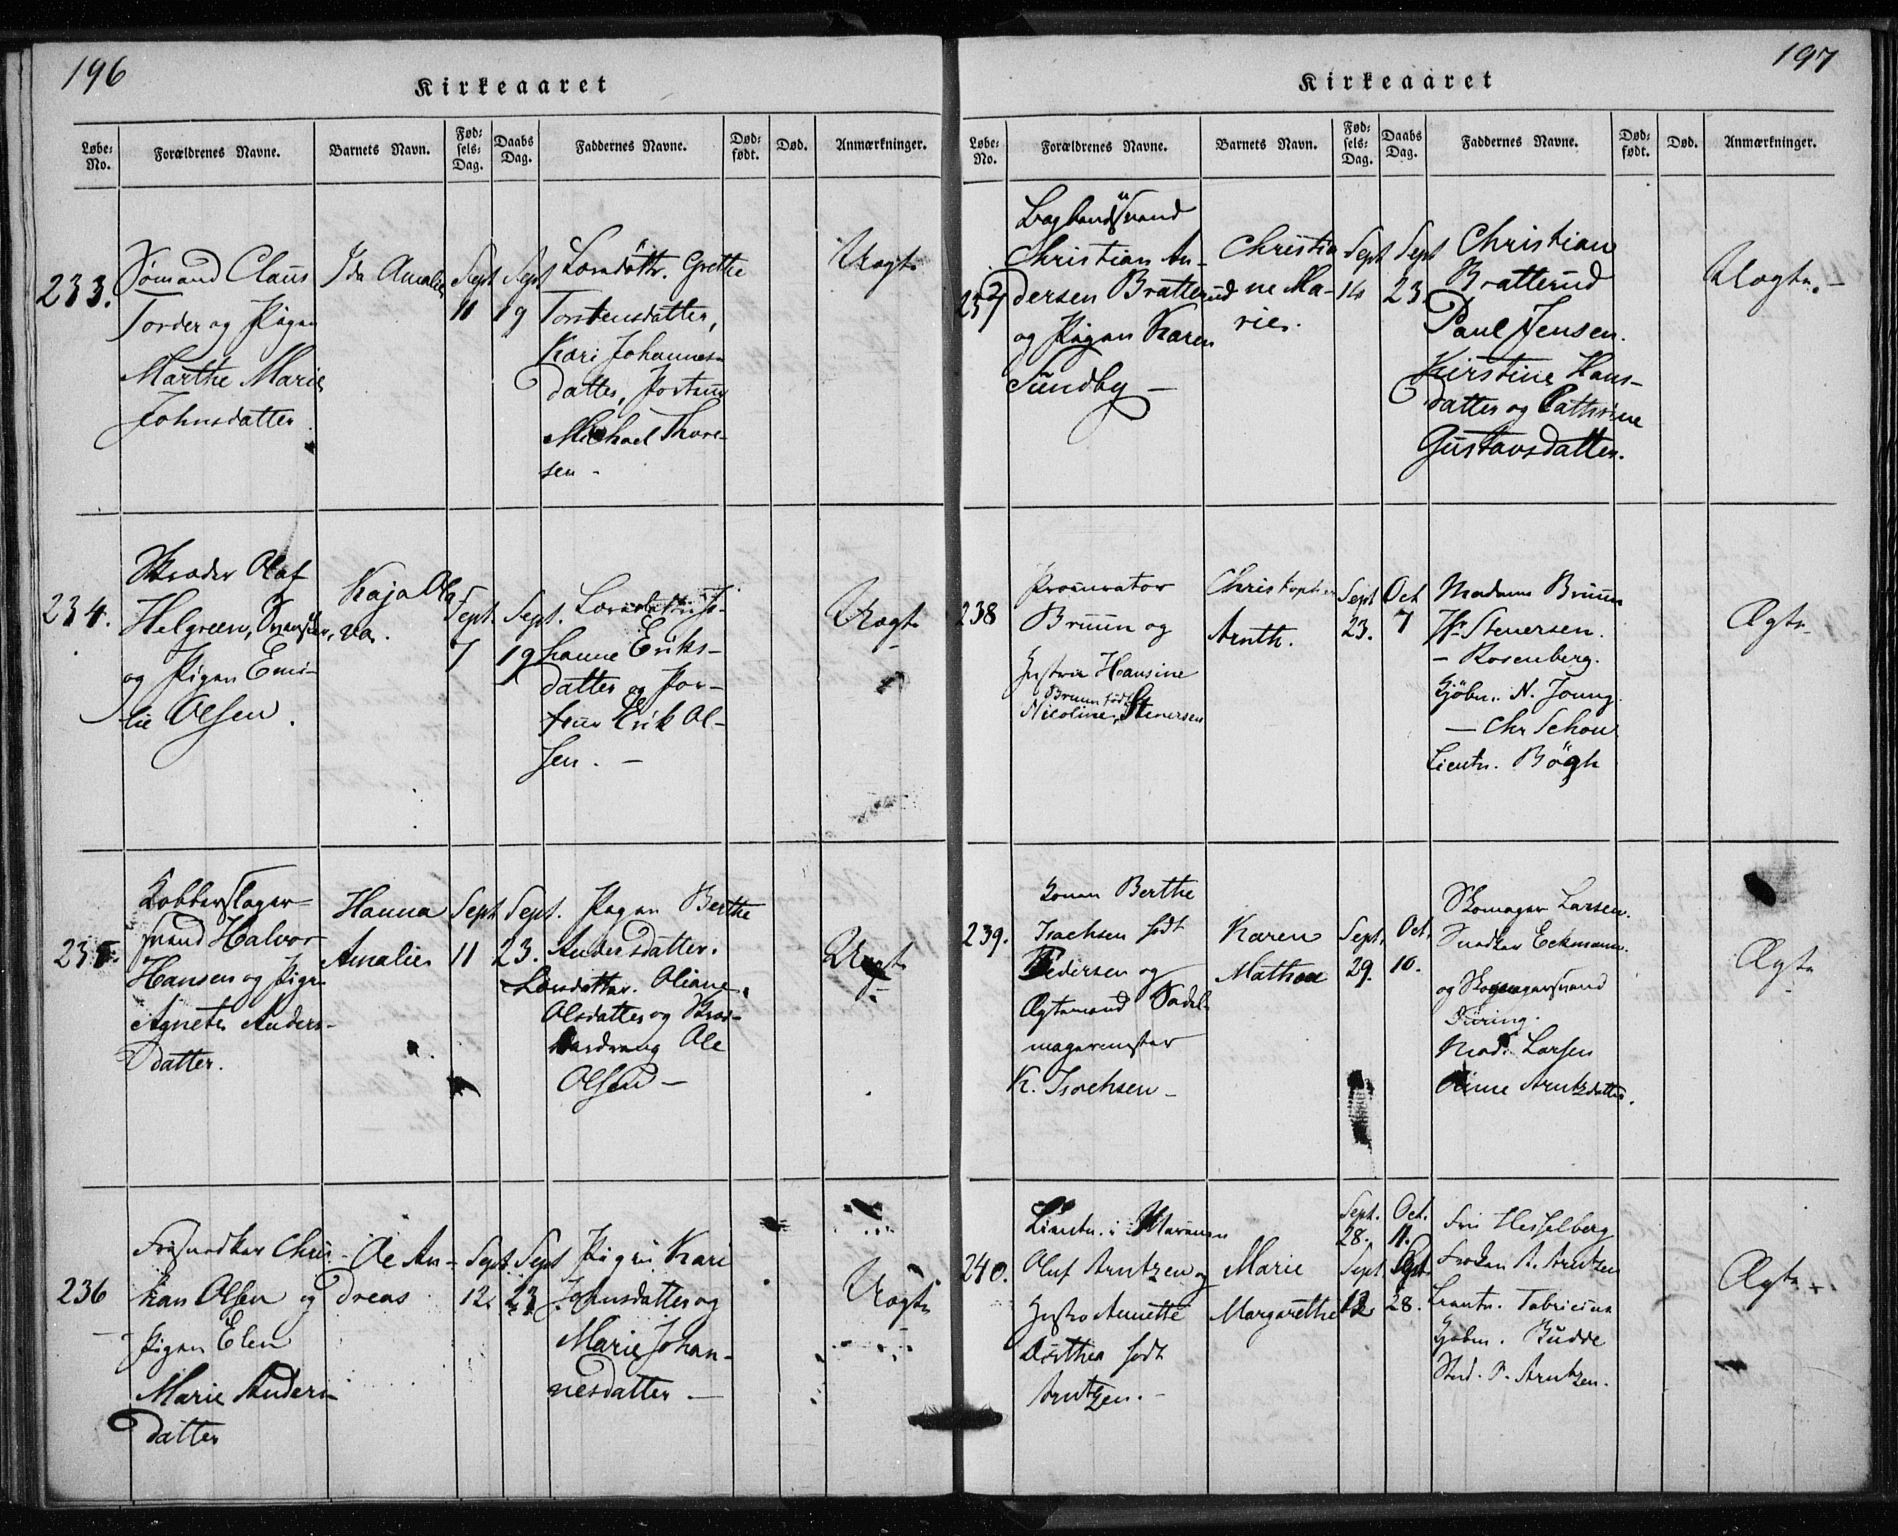 196
Kirkeaaret
Løbe-No. Forældrenes Navne. Barnets Navn. Fødsels-Dag. Daabs Dag. Faddernes Navne. Dødfødt. Død. Anmærkninger.
233.
Sømand Claus
Torder og Pigen
Marthe Marie
Johnsdatter
Ida Amalie
Sept
11
Sept.
19
Grethe
Torstensdatter,
Kari Johannes
datter,
Michael Thore-
sen -
Uægte
234.
Skræder Olaf
Helgreen, Svensker,
og Pigen Emi-
lie Olsen.
Kaja Ola
va.
Sept.
7
Sept.
19
hanne Eriks-
datter og
Erik Ol-
sen. -
Uægte
235.
Kobberslager-
svend Halvor
Hansen og Pige
Agnete Anders-
datter.
Hanna
Amalie
Sept
11
Sept.
23.
Pigen Berthe
Andersdatter.
Oliane
Olsdatter og
Ole
Olsen -
Uægte
236
Chri-
stian Olsen og
Pigen Elen
Marie Anders-
datter
Ole An-
dreas
Sept
12.
Sept
23.
Pige Kari
Johnsdatter og
Marie Johan-
nesdatter. -
Uægte
197
Kirkeaaret
Løbe-No. Forældrenes Navne. Barnets Navn. Fødsels-Dag. Daabs Dag. Faddernes Navne. Dødfødt. Død. Anmærkninger.
237
Christian An-
dersen Bratterud
og Pigen Karen
Sundby -
Christia
ne Ma-
rie.
Sept
14
Sept
23.
Christian
Bratterud
Paul Jensen.
Kirstine Hans-
datter og Cathrine
Gustavsdatter.
Uægte. -
238
Procurator
Bruun og
Hustrue Hansine
Bruun født
Nicoline, Stenersen
Christopher
Arnth.
Sept
23.
Oct
7
Madam Bruun
Hr Stenersen.
- Rosenberg.
Kjøbm. N. Joung.
- Chr Schou
Lieutn. Bögh
Ægte
239.
Konen Berthe
Isachsen født
Pedersen og
Ægtemand Sadel-
magermester
K. Isachsen -
Karen
Mathea
Sept.
29.
Oct.
10.
Skomager Larsen.
Snedker Eckmann.
og Skomagersvend
During.
Mad. Larsen
Anne Arntzdatter.
Ægte
240.
Lieutn. i Marinen
Oluf Arntzen og
Hustro Annette
Dorthea født
Arntzen. -
Marie
Margarethe
Sept.
28.
Sept
12
Oct.
11.
Sept
28.
Fru Hesselberg
Frøken A. Arntzen
Lieutn. Fabricius
Kjøbm. Budde
Stud. P. Arntzen.
Ægte